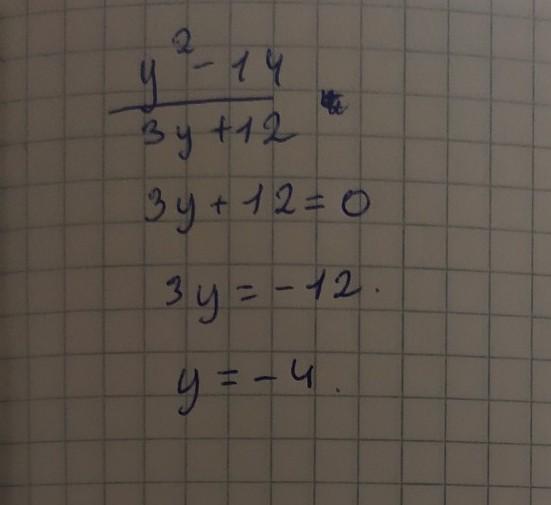 y² - 14
3y + 12
3y + 12 = 0
3y = -12.
y = -4.